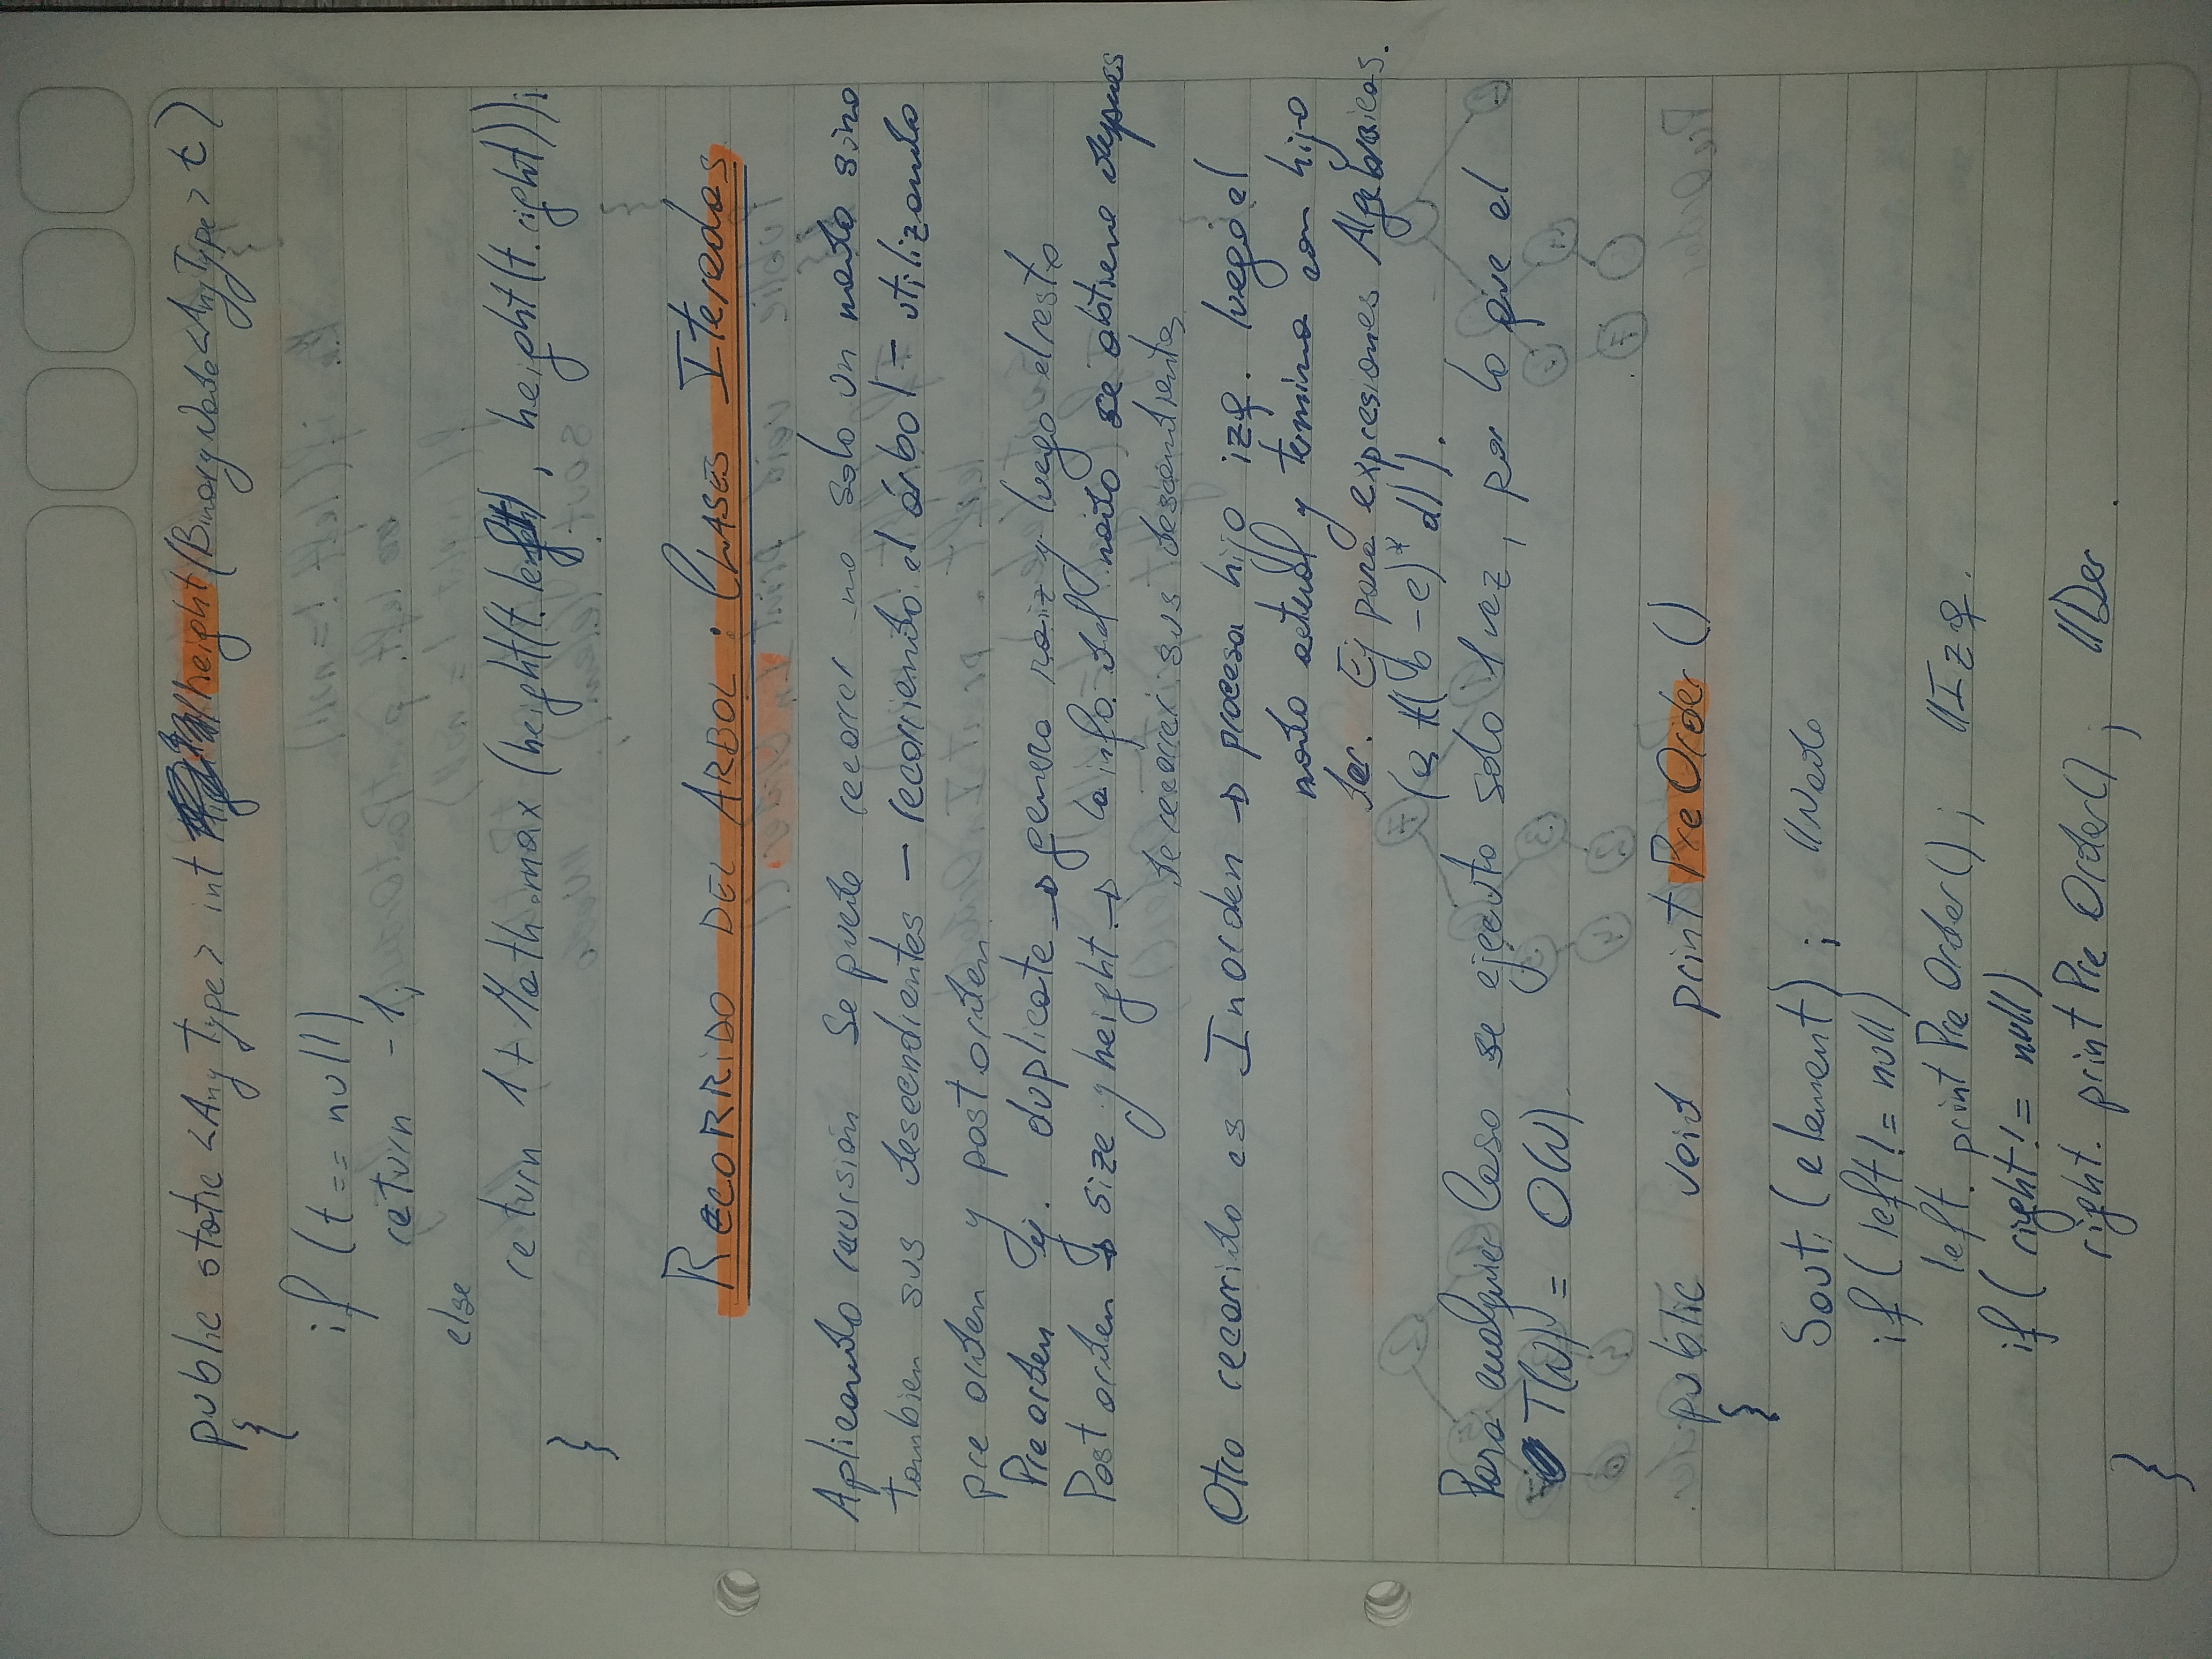 public static <AnyType> int height(BinaryNode<AnyType> t)
{
if (t == null)
return -1;
else
return 1 + Math.max (height(t.left), height(t.right));
}
RECORRIDO DEL ARBOL: CLASES Iteradas
Aplicando recursión se puede recorrer no solo un nodo sino
tambien sus descendientes - recorriendo el árbol - utilizando
pre orden y post orden.
Pre orden ej. duplicate → genera raiz y luego el resto
Post orden → size y height → la info. del nodo se obtiene depues
de recorrer sus descendientes
Otro recorrido es Inorden → procesa hijo izq. luego el
nodo actual y termina con hijo
der. Ej para expresiones Algebraicas.
(a + ((b - c) * d)).
Para cualquier Caso se ejecuta solo 1 vez, por lo que el
T(N) = O(N).
public void printPreOrder ()
{
Sout. (element); //Nodo
if (left != null)
left. printPreOrder(); //Izq.
if (right != null)
right. printPreOrder(); //Der.
}